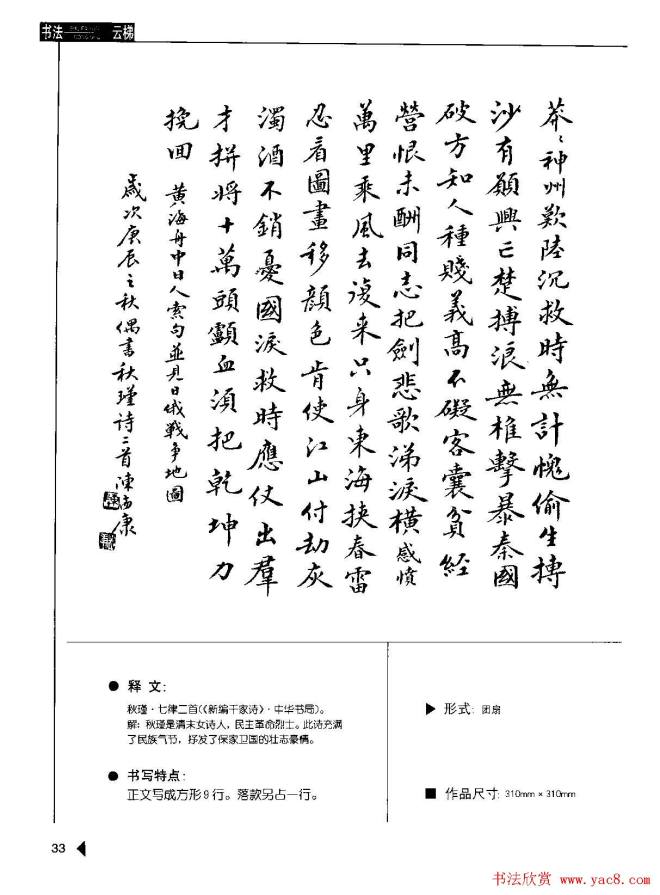 书法 云梯
莽〻神州歎陸沉救時無計愧偷生摶
沙有願興亡楚搏浪無椎擊暴秦國
破方知人種賤義高不礙客囊貧經
營恨未酬同志把劍悲歌涕淚橫感憤
萬里乘風去復来只身東海挟春雷
忍看圖畫移顔色肯使江山付劫灰
濁酒不銷憂國淚救時應仗出羣
才拼將十萬頭顱血須把乾坤力
挽回 黄海舟中日人索句並見日俄戰爭地圖
歲次庚辰之秋偶書秋瑾诗二首陳尚康
● 释 文:
秋瑾·七律二首(《新编千家诗》·中华书局)。
解: 秋瑾是清末女诗人, 民主革命烈士。此诗充满
了民族气节, 抒发了保家卫国的壮志豪情。
● 书写特点:
正文写成方形9行。落款另占一行。
▶ 形式: 团扇
■ 作品尺寸: 310mm × 310mm
33
书法欣赏 www.yac8.com